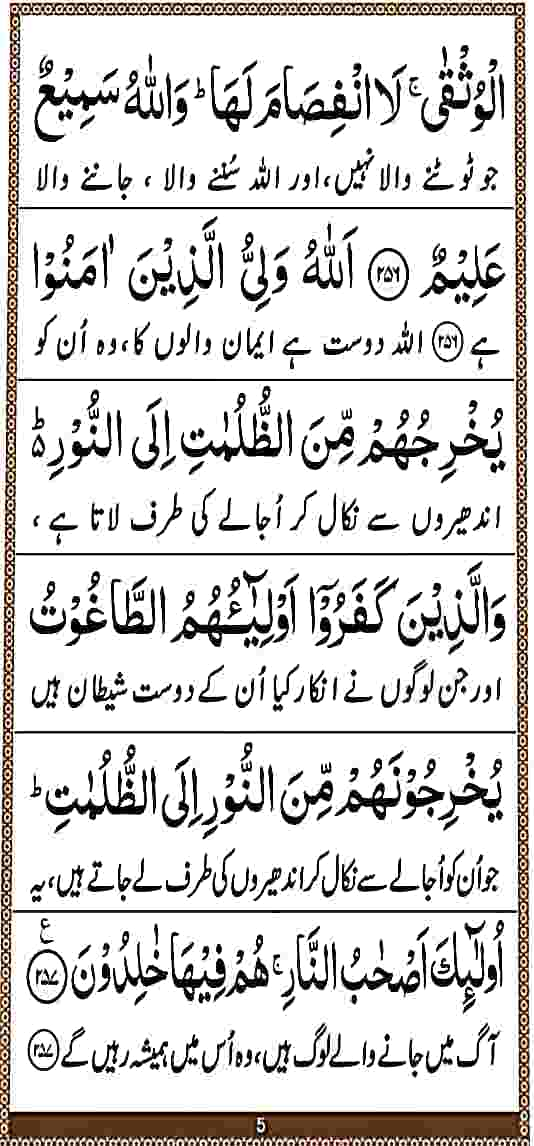 الْوُثْقٰى ۚ لَا انْفِصَامَ لَهَا ؕ وَاللّٰهُ سَمِيْعٌ
جو ٹوٹنے والا نہیں، اور اللہ سُننے والا ، جاننے والا
عَلِيْمٌ ﴿۲۵۶﴾ اَللّٰهُ وَلِيُّ الَّذِيْنَ اٰمَنُوْا
ہے ﴿۲۵۶﴾ اللہ دوست ہے ایمان والوں کا، وہ اُن کو
يُخْرِجُهُمْ مِّنَ الظُّلُمٰتِ اِلَى النُّوْرِ ؕ۵
اندھیروں سے نکال کر اُجالے کی طرف لاتا ہے ،
وَالَّذِيْنَ كَفَرُوْۤا اَوْلِيٰٓـُٔهُمُ الطَّاغُوْتُ
اور جن لوگوں نے انکار کیا اُن کے دوست شیطان ہیں
يُخْرِجُوْنَهُمْ مِّنَ النُّوْرِ اِلَى الظُّلُمٰتِ ؕ
جو اُن کو اُجالے سے نکال کر اندھیروں کی طرف لے جاتے ہیں، یہ
اُولٰٓئِكَ اَصْحٰبُ النَّارِ ۚ هُمْ فِيْهَا خٰلِدُوْنَ ﴿۲۵۷﴾ ع
آگ میں جانے والے لوگ ہیں، وہ اُس میں ہمیشہ رہیں گے ﴿۲۵۷﴾
5